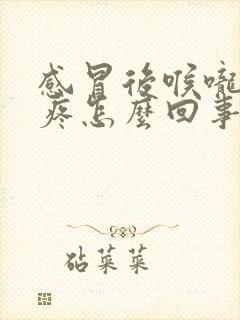 感冒後喉嚨
疼怎麼回事
砧菜菜